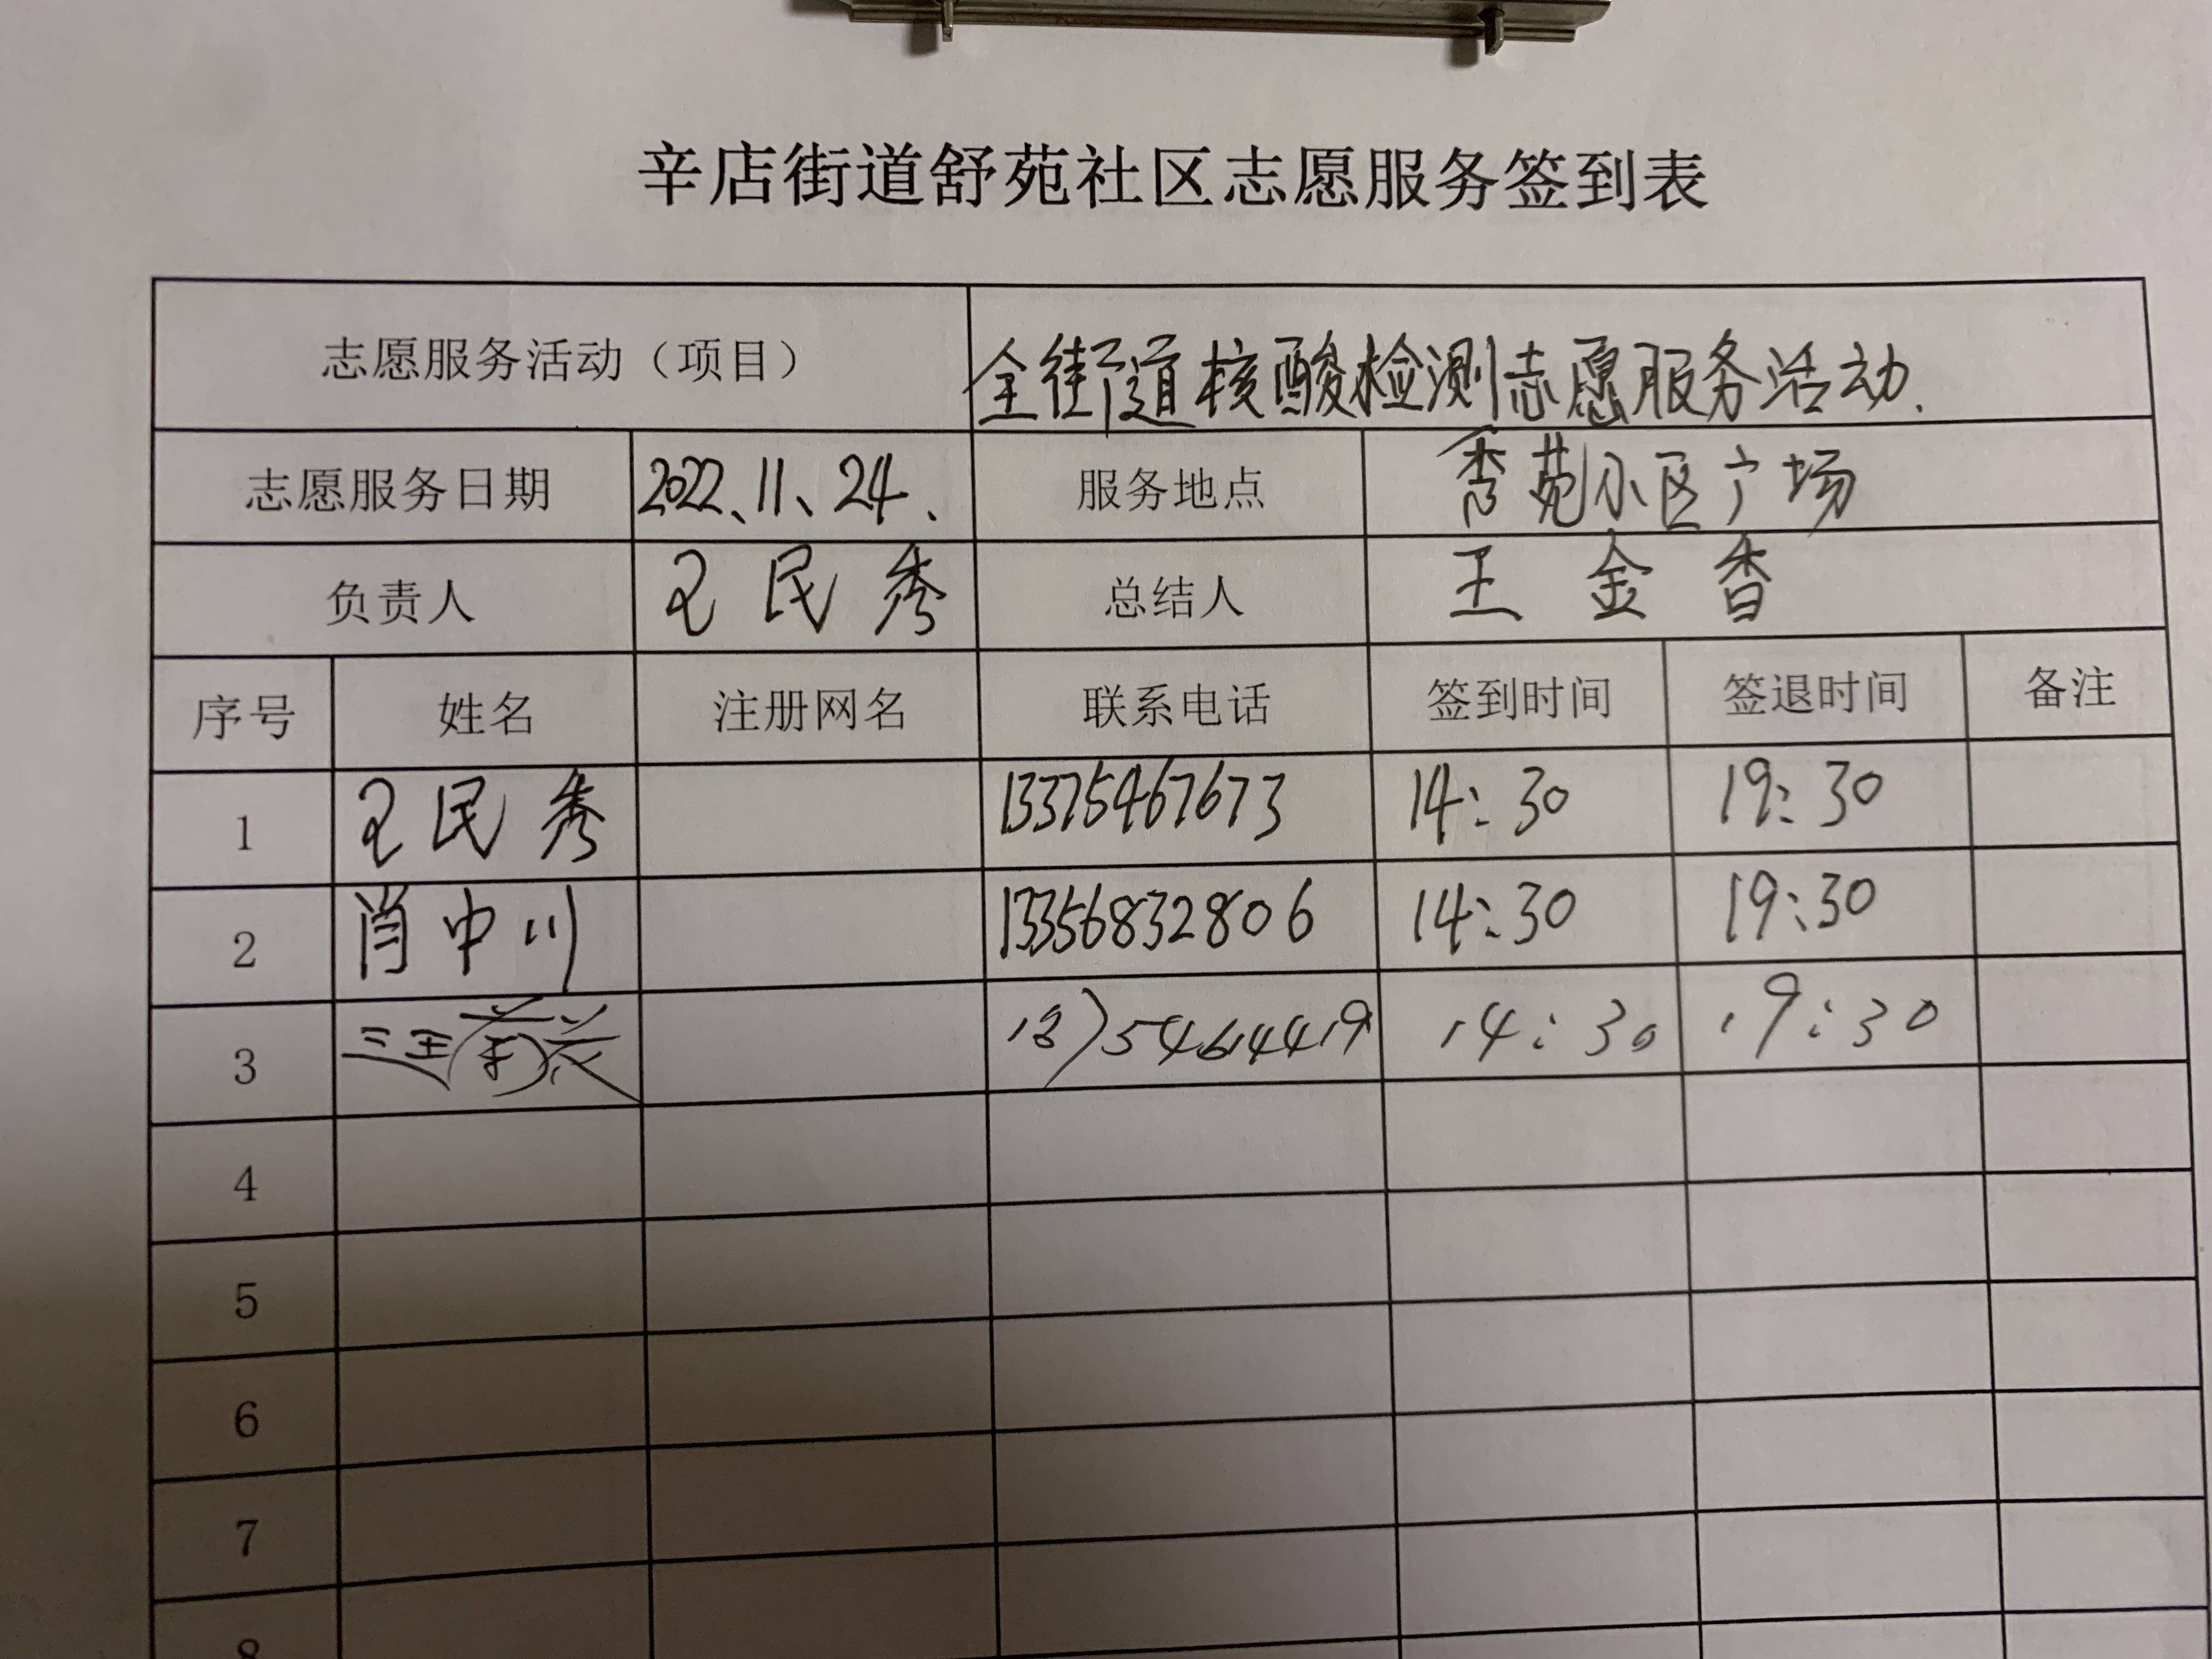 辛店街道舒苑社区志愿服务签到表
志愿服务活动（项目） 全街道核酸检测志愿服务活动.
志愿服务日期 2022、11、24、 服务地点 秀苑小区广场
负责人 王民秀 总结人 王金香
序号 姓名 注册网名 联系电话 签到时间 签退时间 备注
1 王民秀 13375467673 14:30 19:30
2 肖中川 13356832806 14:30 19:30
3 14:30 19:30
4
5
6
7
8